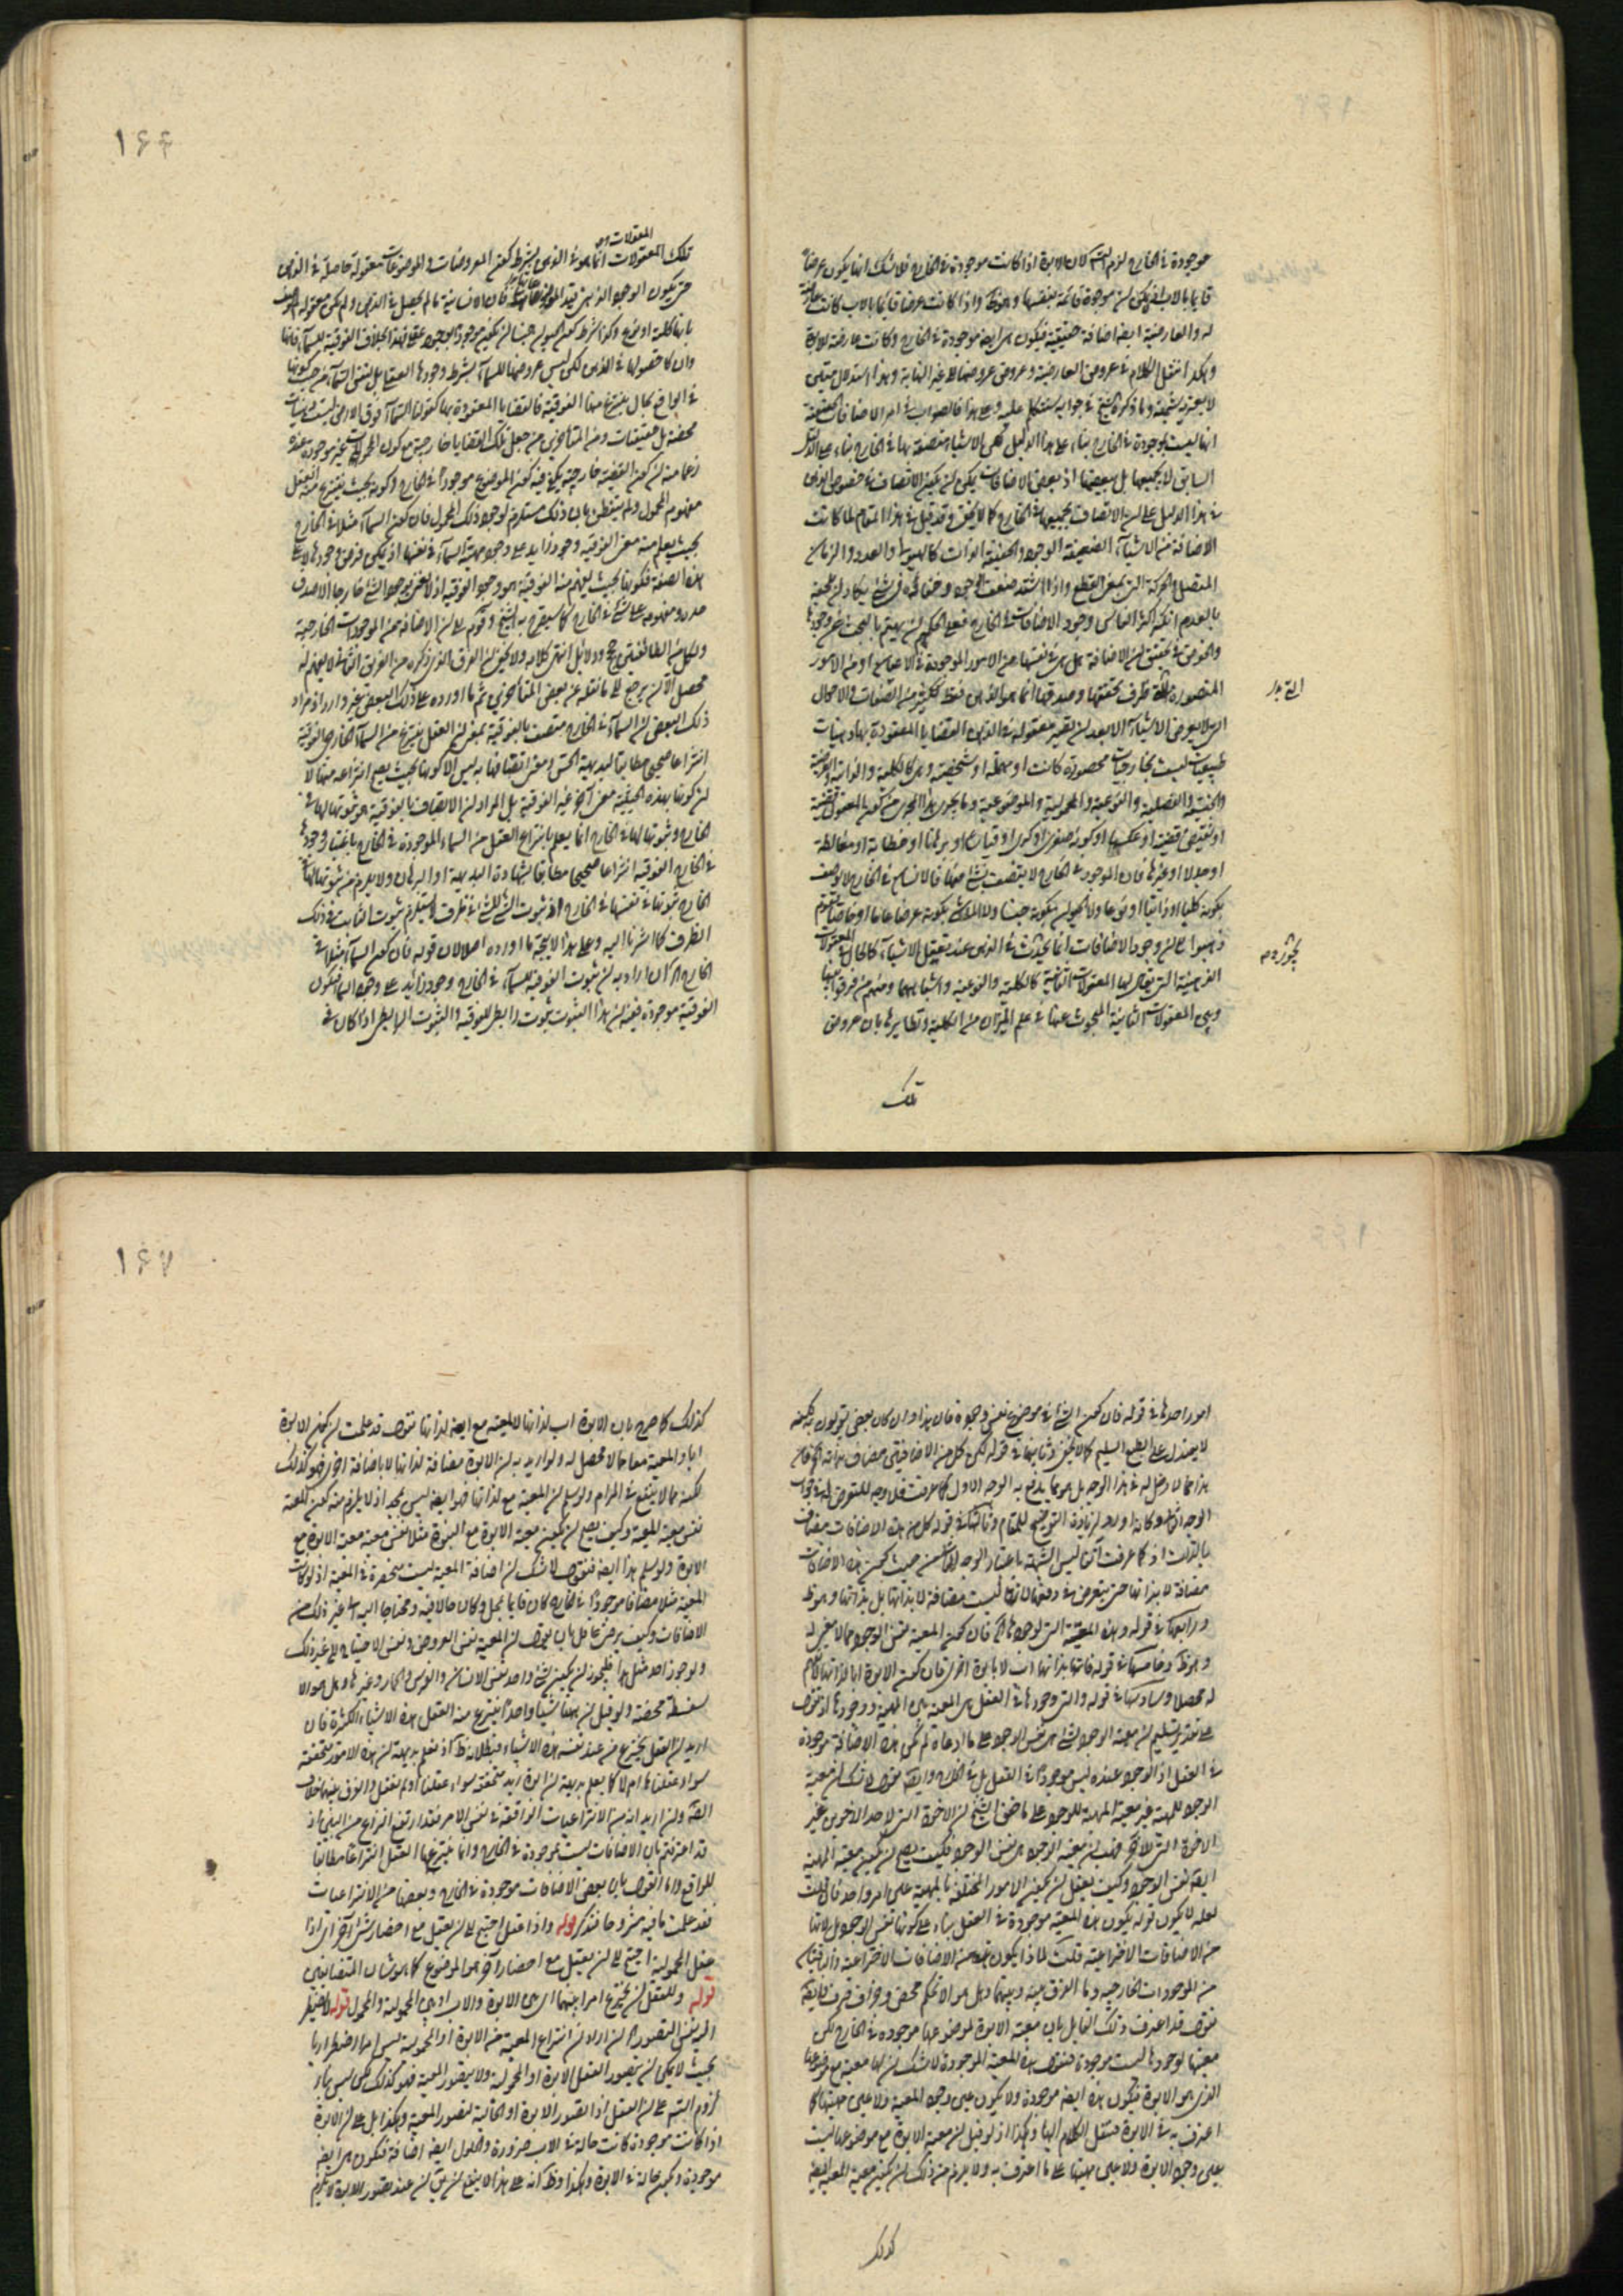 موجودة في الخارج لزم التسلسل لان الابوة اذا كانت موجودة في الخارج فلا شك انها يكون عرضا
قايما بالاب اذ لا يمكن ان موجودة قائمة بنفسها وهو ظ واذا كانت عرضا قايما بالاب كانت عارضة
له والعارضية ايضا اضافة حقيقية فيكون هي ايضا موجودة في الخارج وكانت عارضة للابوة
وهكذا ننقل الكلام في عروض العارضية وعروض عروضها الى غير النهاية وهذا استدلال متين
لا يعتريه شبهة وما ذكره الشيخ في جوابه سنتكلم عليه وعلى هذا فالصواب في امر الاضافات الحقيقية
انها ليست بموجودة في الخارج بناء على هذا الدليل لكن الاشياء متصفة بها في الخارج بناء على الدليل
السابق لا بجميعها بل ببعضها اذ بعض الاضافات يمكن ان يكون الاتصاف في خصوص الذهن
في هذا الدليل على ان الاتصاف بجميعها في الخارج كما لا يخفى وقد قيل في هذا المقام لما كانت
الاضافة من الاشياء الضعيفة الوجود والخفيفة الذات كالهيولى والعدد والزمان
المتصل والحركة التي بمعنى القطع واذا اشتد ضعف الوجود وخفائه في شيء يكاد ان يلحقه
بالعدم انكر اكثر الناس وجود الاضافات في الخارج فعلى الحكيم ان يهتم بالبحث عن وجودها
والخوض في تحقيق ان الاضافة هل هي في نفسها من الامور الموجودة في الاعيان او من الامور
المتصورة التي ظرف تحققها وصدقها انما هو الذهن فقط ككثير من الصفات والاحوال
التي لا يعرض الاشياء الا بعد ان تصير معقولة في الذهن والقضايا المعقودة بها ذهنيات
طبيعيات ليست بخارجيات محصورة كانت او مهملة او شخصية وهي كالكلية والذاتية والعرضية
والجنسية والفصلية والنوعية والمحمولية والموضوعية وما يجري هذا المجرى من كون المعقول قضية
او نقيض قضية او عكسها او كونه صغرى او كبرى او قياسا او برهانا او خطابة او مغالطة
او جدلا او غيرها فان الموجود في الخارج لا يتصف بشيء منها فالانسان في الخارج لا يوصف
بكونه كليا او ذاتيا او نوعا ولا الحيوان بكونه جنسا ولا الماشي بكونه عرضا عاما او خاصا فقوم
ذهبوا الى ان وجود الاضافات انما يحدث في الذهن عند تعقل الاشياء كالحال في المعقولات
الذهنية التي يقال لها المعقولات الثانية كالكلية والنوعية واشباههما ومنهم من فرق بينها
وبين المعقولات الثانية المبحوث عنها في علم الميزان من الكلية ونظايرها بان عروض
تلك
١٦٦
تلك المعقولات انما هو في الذهن بشرط كون المعروضات والموضوعات معقولة حاصلة في الذهن
حتى يكون الوجود الذهني قيد الموضوعاتها فان الانسانية ما لم يحصل في الذهن ولم يكن معقولة لم توصف
بانها كلية او نوع وكذا شرط كون الحيوان جنسا ان يكون موجودا بوجود عقلي وهذا بخلاف الفوقية للسماء فانها
وان كان حصولها في الذهن لكن ليس عروضها للسماء بشرط وجودها العقلي بل نفس السماء من حيث كونها
في الواقع بحال ينتزع منها الفوقية فالقضايا المعقودة بها كقولنا السماء فوق الارض ليست ذهنيات
محضة بل حقيقيات ومن المتاخرين من جعل تلك القضايا خارجية مع كون المحمولات غير موجودة عنده
زعما منه ان كون القضية خارجية يكفي فيه كون الموضوع موجودا في الخارج وكونه بحيث ينتزع منه العقل
مفهوم المحمول ولم يتفطن بان ذلك مستلزم لوجود ذلك المحمول فان كون السماء مثلا في الخارج
بحيث يعلم منه معنى الفوقية وجود زايد على وجود مهية السماء في نفسها اذ يمكن فرض وجودها لا على
هذه الصفة فكونها بحيث يفهم منه الفوقية هو وجود الفوقية اذ لا نعني بوجود الشيء خارجا الا صدق
حده ومفهومه على شيء في الخارج كما سيصرح به الشيخ وقوم على ان الاضافة من الموجودات الخارجية
ولكل من الطائفتين حجج ودلائل انتهى كلامه ولا يخفى ان الفرق الذي ذكره من الفريق الثاني لا يفهم له
محصل الا ان يرجع الى ما نقله عن بعض المتاخرين ثم ما اورده على ذلك البعض غير وارد اذ مراد
ذلك البعض ان السماء في الخارج متصف بالفوقية بمعنى ان العقل ينتزع من السماء الخارجي الفوقية
انتزاعا صحيحا مطابقا لبديهة الحس ومعنى اتصافها به ليس الا كونها بحيث يصح انتزاعه منها لا
ان كونها بهذه الحيثية معنى آخر غير الفوقية بل المراد ان الاتصاف بالفوقية هو ثبوتها لها في
الخارج وثبوتها لها في الخارج انما يعلم بانتزاع العقل من السماء الموجودة في الخارج باعتبار وجودها
في الخارج الفوقية انتزاعا صحيحا مطابقا لشهادة البديهة او البرهان ولا يلزم من ثبوتها لها في
الخارج ثبوتها في نفسها في الخارج اذ ثبوت الشيء للشيء في ظرف لا يستلزم ثبوت الثابت في ذلك
الظرف كما اشرنا اليه وعلى هذا لا يتجه ما اورده اصلا لان قوله فان كون السماء مثلا في
الخارج الخ ان اراد به ان ثبوت الفوقية للسماء في الخارج وجود زايد على وجود السماء فيكون
الفوقية موجودة ففيه ان هذا الثبوت ثبوت رابطي للفوقية والثبوت الرابطي اذا كان في
امور احدها في قوله فان كون الشيء في موضوع نفس وجوده فان هذا وان كان بعض يقولون به لكنه
لا يصدر عن الطبع السليم كما لا يخفى وثانيها في قوله لكن كل من الاضافتين مضاف بذاته الخ فان
هذا مما لا دخل له في هذا الوجه بل هو مما يندفع به الوجه الاول كما عرفت فلا وجه للتعرض له في جواب
بالذات اذ كما عرفت آنفا ليس الشبهة باعتبار الوجه من حيث كون هذه الاضافات
مضافة لا بذاتها حتى يتعرض في دفعها لانها ليست مضافة لا بذاتها بل بذاتها وهو ظ
ورابعها في قوله وهذه المعية التي لوجودها الخ فان كون المعية نفس الوجود مما لا معنى له
وهو ظ وخامسها في قوله فانها بذاتها اب لا بابوة اخرى فان كون الابوة ابا لذاتها كلام
لا محصل له وسادسها في قوله والتي وجودها في العقل هي المعية بين المهية ووجودها اذ نقول
على تقدير تسليم ان معية الوجود لشيء هي نفس الوجود على ما ادعاه لم يكن هذه الاضافة موجودة
في العقل اذ الوجود عنده ليس موجودا في العقل بل في الخارج وايضا نقول لا شك ان معية
الوجود للمهية غير معية المهية للوجود على ما حقق الشيخ ان الاخوة التي لاحد الاخوين غير
الاخوة التي للآخر فهب ان معية الوجود هي نفس الوجود فكيف يصح ان يكون معية المهية
ايضا نفس الوجود وكيف يعقل ان يكون الامور المختلفة بالمهية عين امر واحد فان قلت
لعله لا يكون قوله بكون هذه المعية موجودة في العقل بناء على كونها نفس الوجود بل لانها
من الاضافات الاختراعية قلت لماذا يكون هذه من الاضافات الاختراعية والباقيتان
من الموجودات الخارجية وما الفرق بينه وبينهما وهل هو الا تحكم محض وجزاف صرف وايضا
نقول قد اعترف ذلك القايل بان معية الابوة لموضوعها موجودة في الخارج لكن
معيتها لوجودها ليست موجودة فنقول هذه المعية الموجودة لا شك ان لها معية مع موضوعها
الذي هو الابوة فيكون هذه ايضا موجودة ولا يكون عين وجود المعية ولا عين مهيتها كما
اعترف به في الابوة فننقل الكلام اليها وهكذا اذ لو قيل ان معية الابوة مع موضوعها ليست
بعين وجود الابوة ولا عين مهيتها على ما اعترف به ولا يلزم من ذلك ان يكون معية المعية ايضا
كذلك
١٦٧
كذلك كما صرح بان الابوة اب لذاتها والمعية مع ايضا لذاتها نقول قد علمت ان كون الابوة
ابا والمعية معا مما لا محصل له ولو اريد به ان الابوة مضافة لذاتها لا باضافة اخرى فهو كذلك
لكنه مما لا ينفع في المرام ولو سلم ان المعية مع لذاتها فهو ايضا ليس بمجد اذ لا يلزم منه كون المعية
نفس معية المعية وكيف يصح ان يكون معية الابوة مع البنوة مثلا نفس معية معية الابوة مع
الابوة ولو سلم هذا ايضا فنقول لا شك ان اضافة المعية ليست منحصرة في المعية اذ لو كانت
المعية مثلا مضافا موجودا في الخارج كان قايما بمحل وكان حالا فيه ومحتاجا اليه الى غير ذلك من
الاضافات وكيف يرضى عاقل بان يقول ان المعية نفس العروض ونفس الاحتياج الى غير ذلك
ولو جوز احد مثل هذا فليجوز ان يكون شيء واحد نفس الانسان والفرس والحمار وغيرها وهل هو الا
سفسطة محضة ولو قيل ان هنا شيئا واحدا ينتزع منه العقل هذه الاشياء الكثيرة فان
اريد ان العقل يخترع من عند نفسه هذه الاشياء فبطلانه ظ اذ نعلم بديهة ان هذه الامور متحققة
سواء عقلناها ام لا كما يعلم بديهة ان ابوة زيد متحققة سواء عقلناها او لم نعقل والفرق بينهما خلاف
البديهة وان اريد انه من الانتزاعيات الواقعة في نفس الامر فقد ارتفع النزاع من البين اذ
قد اعترف بان الاضافات ليست بموجودة في الخارج وانما ينتزعها العقل انتزاعا مطابقا
للواقع واما القول بان بعض الاضافات موجودة في الخارج وبعضها من الانتزاعيات
فقد علمت ما فيه مشروحا فتذكر قوله واذا عقل احتيج الى ان يعقل مع احضار شيء آخر اي اذا
عقل المحمولية احتيج الى ان يعقل مع احضار آخر هو الموضوع كما هو شان المتضايفين
قوله وللعقل ان يخترع امرا بينهما اي بين الابوة والاب او بين المحمولية والمحمول قوله لا يضطر
اليه نفس التصور الخ ان اراد ان انتزاع المعية من الابوة او المحمولية ليس امرا اضطراريا
بحيث لا يمكن ان يتصور العقل الابوة او المحمولية ولا يتصور المعية فهو كذلك لكن ليس بناء
لزوم التسلسل على ان العقل اذا تصور الابوة او الحالية تصور المعية وهكذا بل على ان الابوة
اذا كانت موجودة كانت حالة في الاب ضرورة والحلول ايضا اضافة فيكون هي ايضا
موجودة ويكون حالة في الابوة وهكذا وظ انه على هذا لا ينفع ان يقال ان عند تصور الابوة لا يلزم